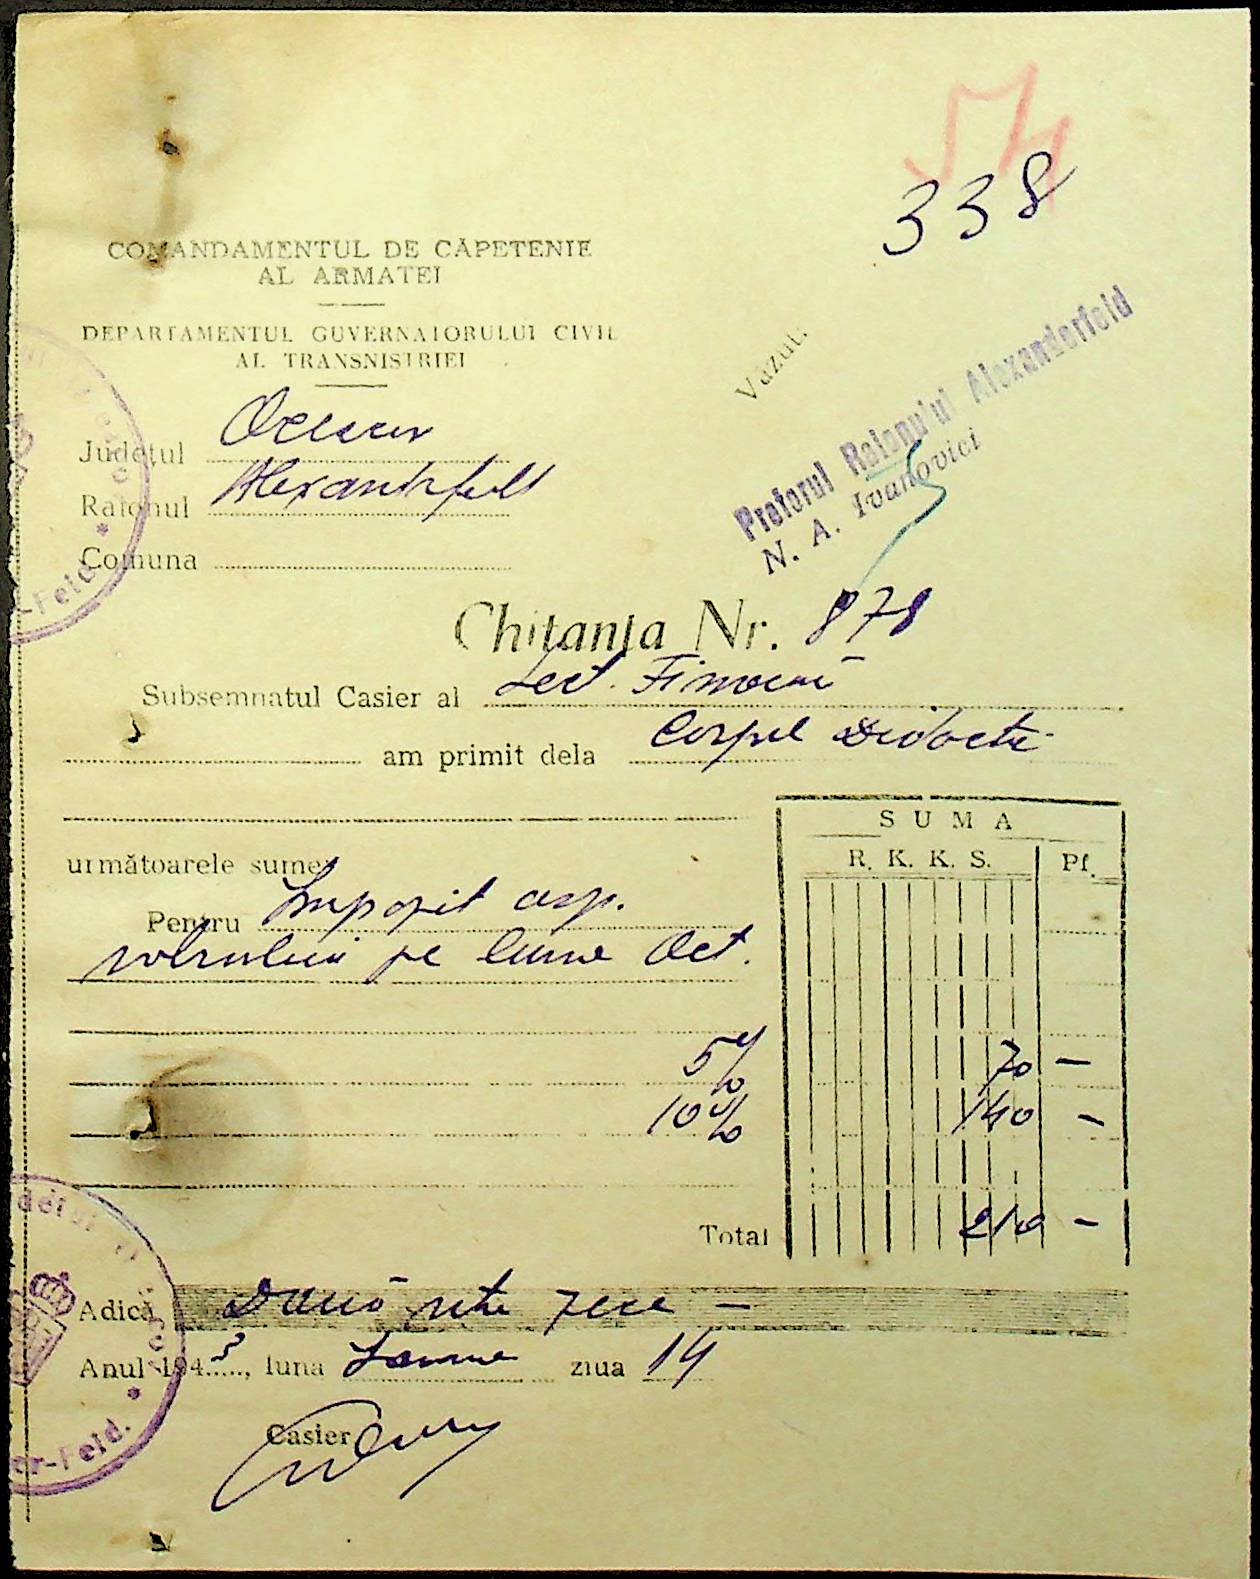 54
338
COMANDAMENTUL DE CĂPETENIE
AL ARMATEI
DEPARTAMENTUL GUVERNATORULUI CIVIL
AL TRANSNISTRIEI
Văzut.
Preforul Raionu'ui Alexanderfeld
N. A. Ivanovici
Județul
Raionul Alexandrfeld
Comuna
Chitanța Nr. 878
Subsemnatul Casier al Sect. Financiară
am primit dela Corpul Didactic
următoarele sume:
SUMA
R. K. K. S. Pf.
Pentru Impozit asp.
pe luna Oct.
5% 70 —
10% 140 —
Total 210 —
Adică Două sute zece —
Anul 1943, luna ziua 14
Casier
-Feld. *
er-Feld. *